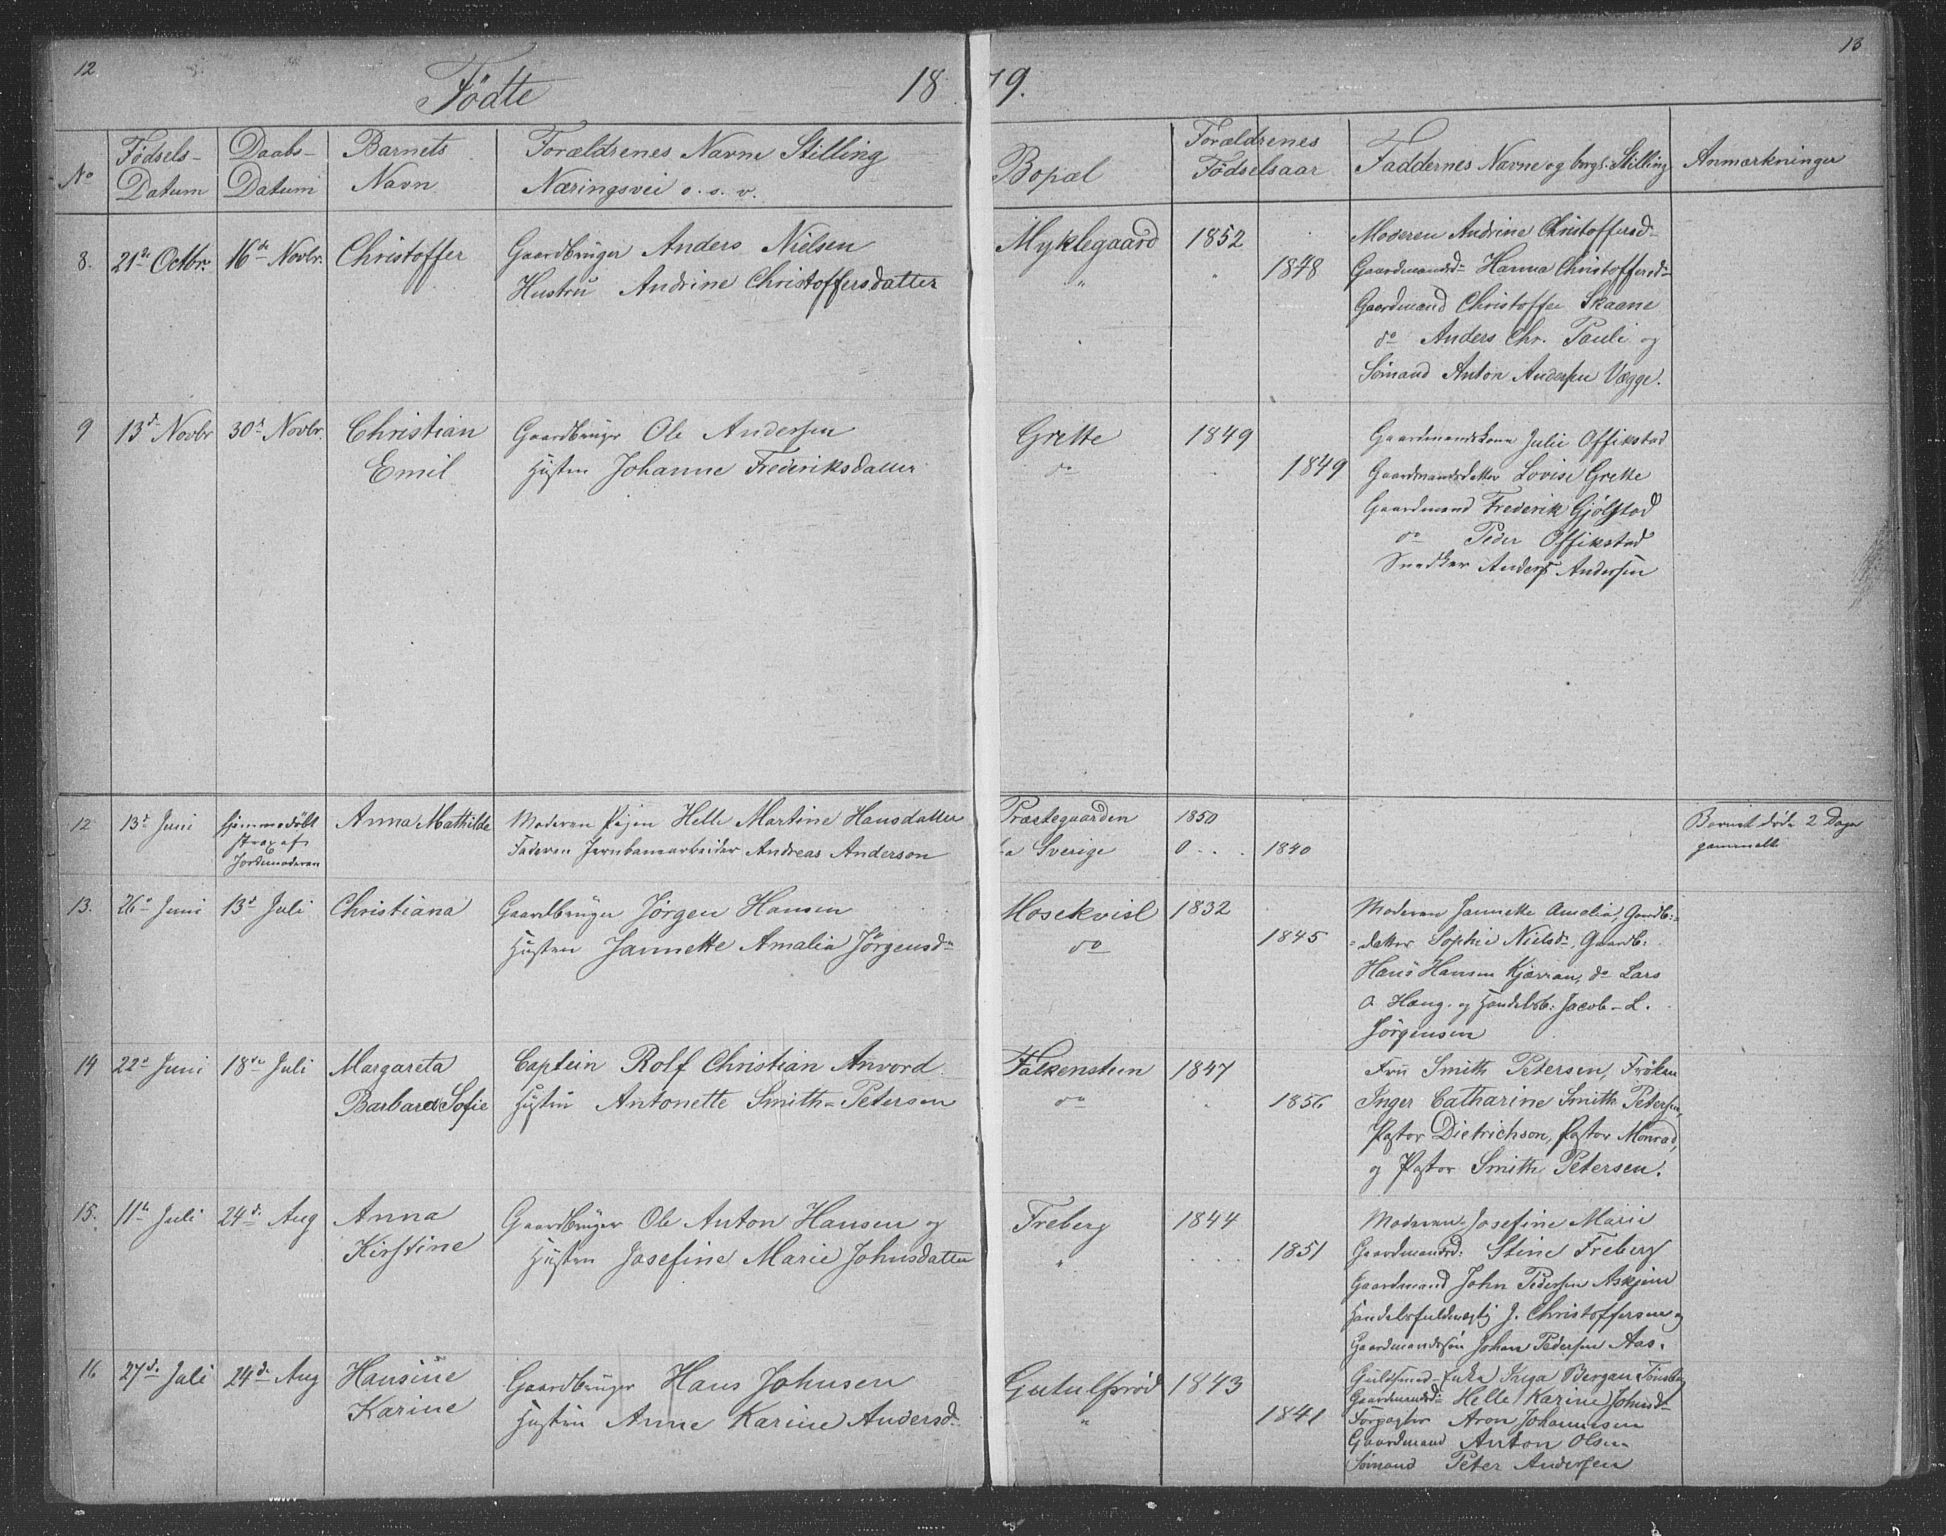 12
Fødte 1879.
13
No
Fødsels-Datum
Daabs-Datum
Barnets Navn
Forældrenes Navne Stilling Næringsvei o. s. v.
Bopæl
Forældrenes Fødselsaar
Faddernes Navne og borgl. Stilling
Anmærkninger
8. 21de Octbr. 16de Novbr. Christoffer
Gaardbruger Anders Nielsen
Hustru Andrine Christoffersdatter
Myklegaard 1852
" 1848
Moderen Andrine Christoffersd-
Gaardmandsd- Hanna Christoffersd-
Gaardmand Christoffer Skaane
do Anders Chr. Pauli og
Sømand Anton Andersen Vægge.
9 13d Novbr 30d Novbr. Christian
Emil
Gaardbruger Ole Andersen
Hustru Johanne Frederiksdatter
Grette 1849
do 1849
Gaardmandskone Julie Offikstad
Gaardmandsdatter Lovise Grette
Gaardmand Frederik Gjølstad
do Peder Offikstad
Snedker Anders Andersen
12 13d Juni
hjemmedøbt
strax af
Jordemoderen
Anna Mathilde
Moderen Pigen Helle Martine Hansdatter
Faderen Jernbanearbeider Andreas Anderson
Præstegaarden 1850
fra Sverige 1840
Barnet døde 2 Dage
gammelt
13. 26d Juni 13d Juli Christiana
Gaardbruger Jørgen Hansen
Hustru Jannette Amalia Jørgensd-
Mosekvisl 1832
do 1845
Moderen Jannette Amalia, Gaardb:-
datter Sophie Nielsd-, Gaardb:
Hans Hansen Kjærran, do Lars
O. Haug. og Handelsb: Jacob L.
Jørgensen
14 22d Juni 18de Juli Margareta
Barbara Sofie
Captein Rolf Christian Anvord.
Hustru Antonette Smith-Petersen
Falkensteen 1847
do 1856
Fru Smith Petersen, Frøken
Inger Catharine Smith Petersen,
Pastor Dietrichson, Pastor Monrad,
og Pastor Smith Petersen.
15. 11te Juli 24d Aug Anna
Kirstine
Gaardbruger Ole Anton Hansen og
Hustru Josefine Marie Johnsdatter
Freberg 1844
" 1851
Moderen Josefine Marie
Gaardmandsd: Stine Freberg
Gaardmand John Pedersen Askjem
Handelsfuldmægtig J. Christoffersen og
Gaardmandssøn Johan Pedersen Aas.
16 27d Juli 24d Aug Hansine
Karine
Gaardbruger Hans Johnsen
Hustru Anne Karine Andersd-
Gutulfsrød 1843
" 1841
Guldsmed-Enke Inga Bergan Tønsberg
Gaardmandsd: Helle Karine Johnsd-
Forpagter Aron Johannesen
Gaardmand Anton Olsen
Sømand Peter Andersen